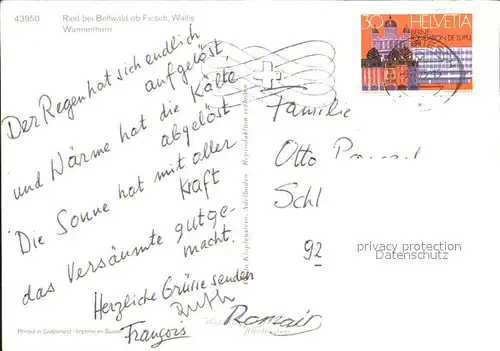 43950 Ried bei Bellwald ob Fiesch, Wallis
Wannenhorn
Der Regen hat sich endlich
aufgelöst,
und Wärme hat die Kälte
abgelöst
Die Sonne hat mit aller
Kraft
das Versäumte gutge-
macht.
Herzliche Grüsse senden
Ruth
François
Romair
Printed in Switzerland - Imprimé en Suisse
30 HELVETIA
Familie
Otto
Schl
92
privacy protection
watermark
Klopfenstein, Adelboden Reproduktion verboten